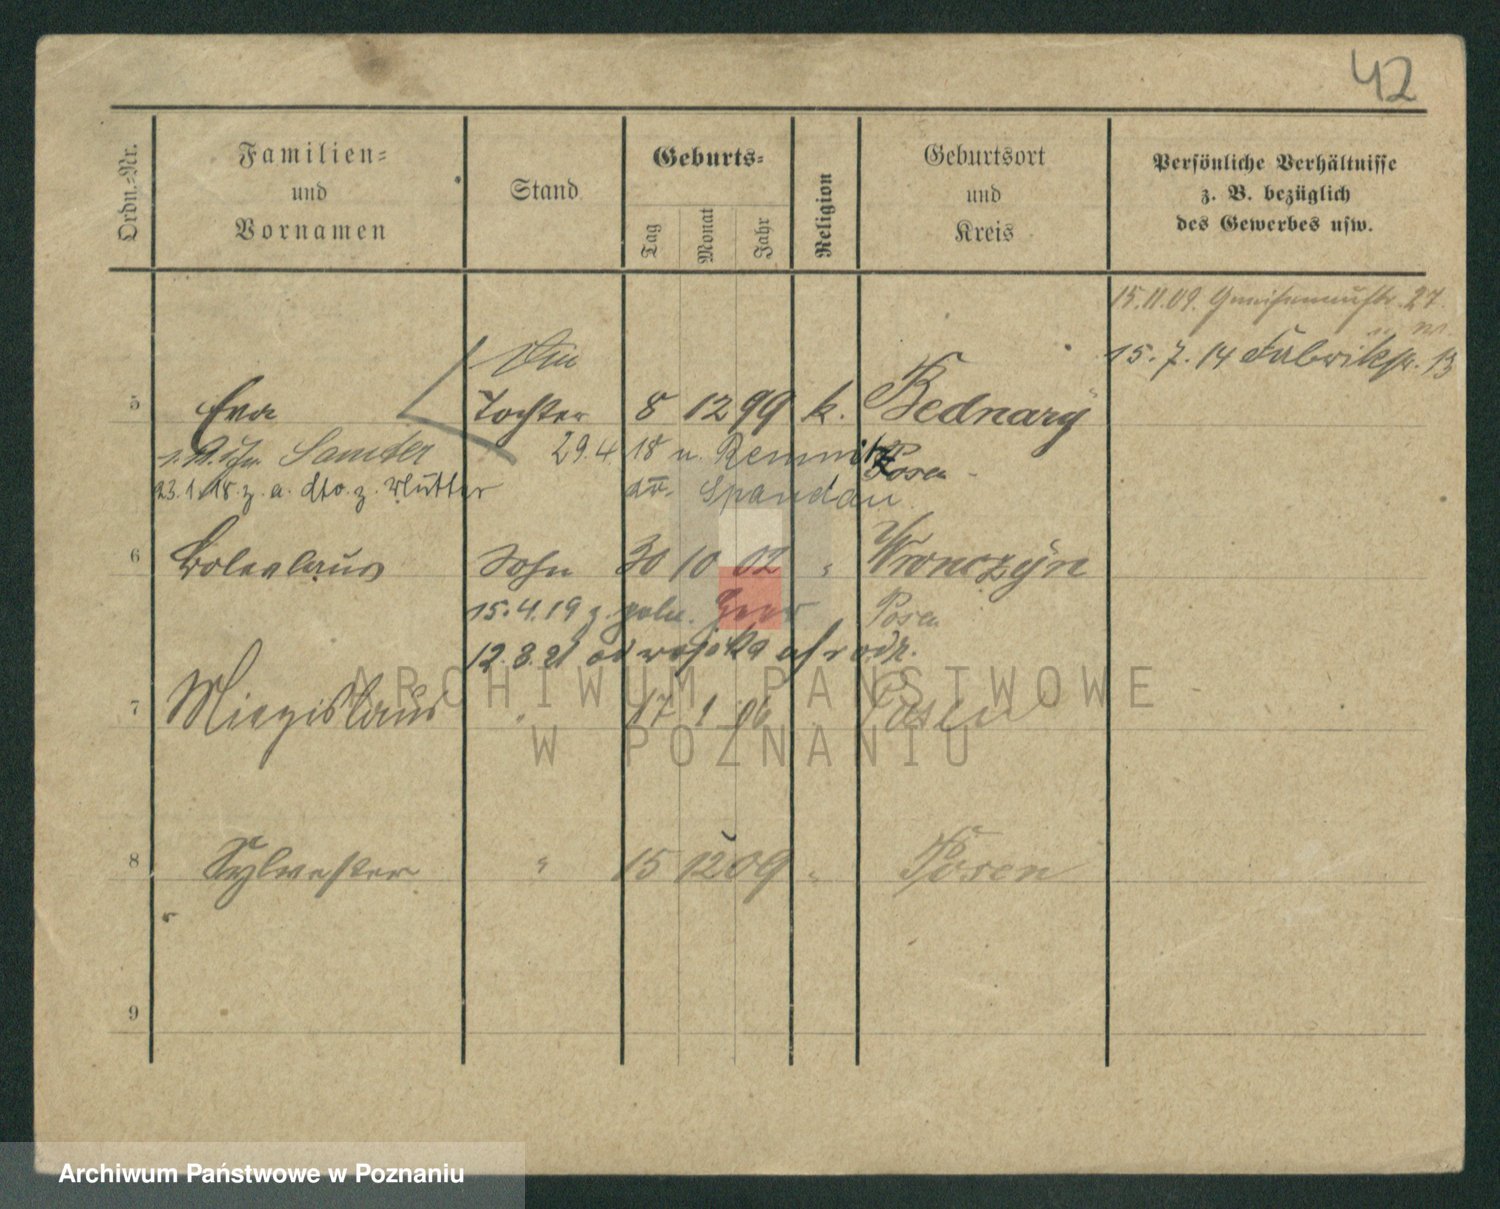 42
Ordn.-Nr.
Familien-
und
Vornamen
Stand
Geburts-
Tag
Monat
Jahr
Religion
Geburtsort
und
Kreis
Persönliche Verhältnisse
z. B. bezüglich
des Gewerbes usw.
15.11.09. Gneisenaustr. 27
15.7.14 Fabrikstr. 13
5 Eva Tochter 8 12 99 k. Bednary
Samter 29.4.18 u. Posen
23.1.18 z. a. dto. z. Mutter Spandau
6 Boleslaus Sohn 30 10 02 " Wronczyn
15.4.19 z. poln. Heer Posen
12.3.21 od wojska
7 Miezislaus " 17 1 06 Posen
8 Sylwester " 15 12 09 " Posen
9
ARCHIWUM PAŃSTWOWE
W POZNANIU
Archiwum Państwowe w Poznaniu